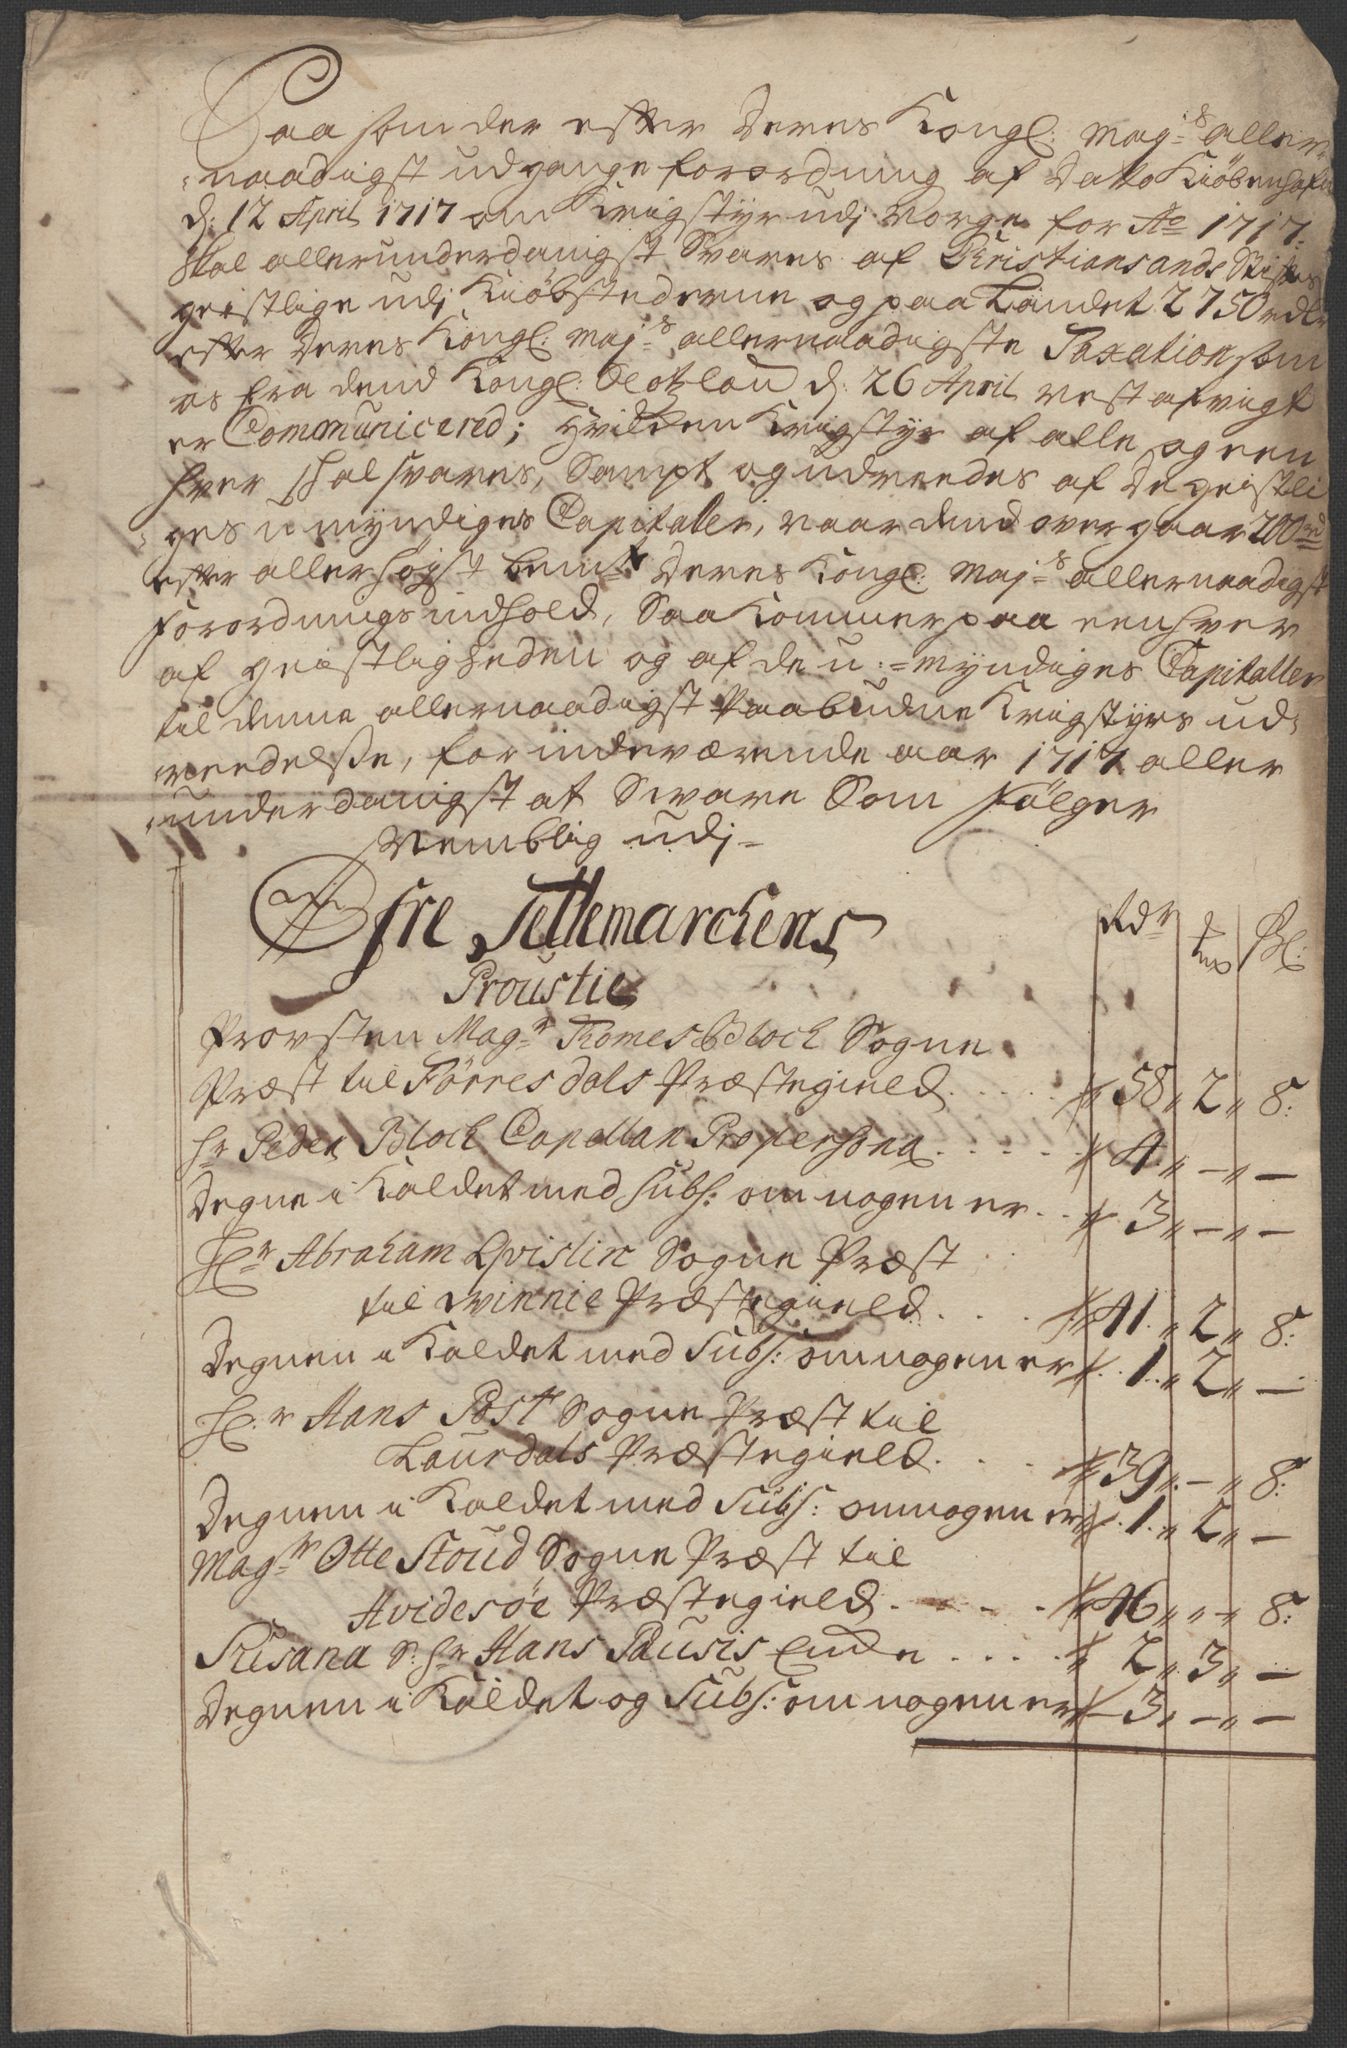 Saasom der efter Deres Kongl: Maj:s aller-
naadigst udgangne forordning af Dato Kiöbenhafn
d: 12 April 1717 om Krigstyr udj Norge for Ao 1717:
skal allerunderdanigst Svares af Kristiansands Stiftes
geistlige udj Kiöbstederne og paa Landet 2750 rdlr
efter Deres Kongl: Maj:s allernaadigste Taxation som
os fra dend Kongl: Slotzlou d: 26 April nest afvigt
er Communicered; Hvilken Krigstyr af alle og een
hver skal svares, Sampt og udreedes af De geistli
ges u-myndiges Capitaller, naar dend overgaar 200 rd
efter allerhøyst bem:te Deres Kongl: Maj:s allernaadigst
forordnings indhold, Saa kommer paa eenhver
af geistligheden og af de u:-myndiges Capitaller
til denne allernaadigst Paabudne Krigstyrs ud-
reedelße, for indeværende aar 1717 aller
underdanigst at Svare Som Følger
Nemblig udj-
Øfre Tellemarchens Rdr ort sk:
Proustie
Provsten Mag:r Tomes Bloch Sogne
Præst til Förresdals Præstegield . . . . 58 " 2 " 8:
Hr Peder Bloch Capellan Propersona . . . . . 4 " - " -
Degne i Kaldet med Subs: om nogen er . . 3 " - " -
Hr Abraham Qvislin Sogne Præst
til Winnie Præstegield . . . 41 " 2 " 8:
Degnen i Kaldet med Subs: om nogen er . 1 " 2 " -
Hr Hans Post Sogne Præst til
Laurdals Præstegield . . . 39 " - " 8:
Degnen i Kaldet med Subs: om nogen er . 1 " 2 " -
Mag:r Otte Stoud Sogne Præst til
Hvidesöe Præstegield . . . . . 46 " - " 8:
Susana S: Hr Hans Pausis Encke . . . . . 2 " 3 " -
Degnen i Kaldet og Subs: om nogen er 3 " - " -